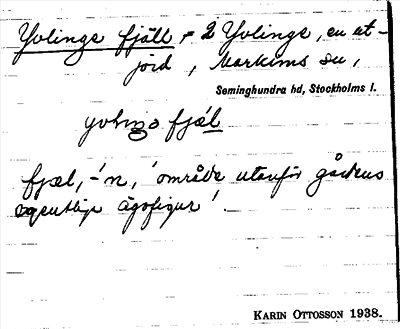 Yvlinge fjäll, = 2 Yvlinge, en ut-
jord, Markims sn,
Seminghundra hd, Stockholms l.
yvlıŋə fjæ̀l
fjæl, -'n, 'område utanför gårdens
egentliga ägofigur'.
KARIN OTTOSSON 1938.